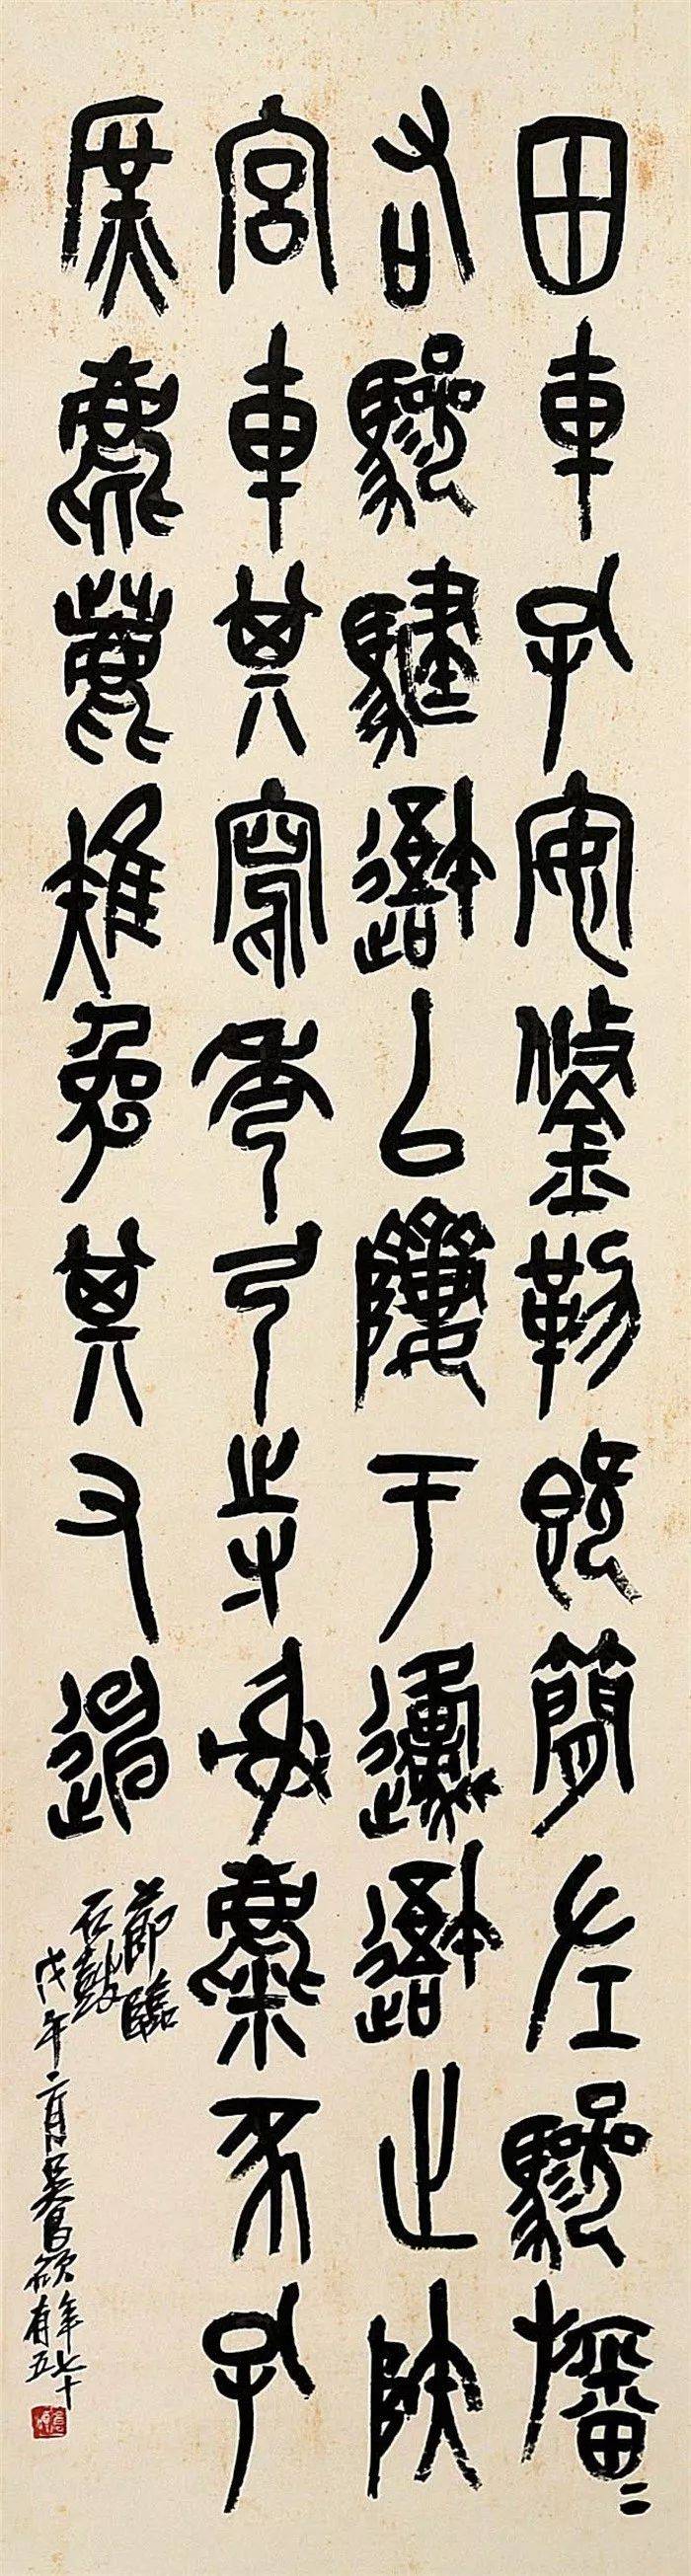 田車孔安鋚勒既簡左驂旛〻
右驂騝吾以隮于邍吾止陝
宮車其寫秀弓寺射麋豕孔
庶麀鹿雉兔其又
節臨
石鼓
戊午二月吳昌碩年七十有五